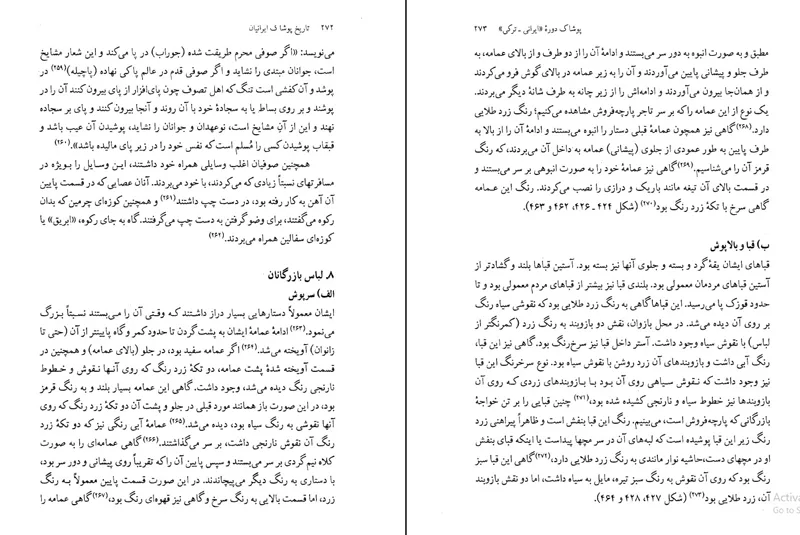 ۲۷۲ تاریخ پوشاک ایرانیان
می‌نویسد: «اگر صوفی محرم طریقت شده (جوراب) در پا می‌کند و این شعار مشایخ
است، جوانان مبتدی را نشاید و اگر صوفی قدم در عالم پاکی نهاده (پاچیله)(۲۵۹)
پوشد و آن کفشی است تنگ که اهل تصوف چون پای‌افزار از پای بیرون کنند آن را در
پوشند و بر روی بساط یا به سجادهٔ خود با آن روند و آنجا بیرون کنند و پای بر سجاده
نهند و این از آنِ مشایخ است، نوعهدان و جوانان را نشاید، پوشیدن آن عیب باشد و
قبقاب پوشیدن کسی را مُسلم است که نفس خود را در زیر پای مالیده باشد».(۲۶۰)
همچنین صوفیان اغلب وسایلی همراه خود داشتند، این وسایل را بویژه در
مسافرتهای نسبتاً زیادی که می‌کردند، با خود می‌بردند. آنان عصایی که در قسمت پایین
آن آهن به کار رفته بود، در دست چپ داشتند(۲۶۱) و همچنین کوزه‌ای چرمین که بدان
رکوه می‌گفتند، برای وضو گرفتن به دست چپ می‌گرفتند. گاه به جای رکوه، «ابریق» یا
کوزه‌ای سفالین همراه می‌بردند.(۲۶۲)
۸. لباس بازرگانان
الف) سرپوش
ایشان معمولاً دستارهایی بسیار دراز داشتند که وقتی آن را می‌بستند نسبتاً بزرگ
می‌نمود.(۲۶۳) ادامهٔ عمامهٔ ایشان به پشت گردن تا حدود کمر و گاه پایینتر از آن (حتی تا
زانوان) آویخته می‌شد.(۲۶۴) اگر عمامه سفید بود، در جلو (بالای عمامه) و همچنین در
قسمت آویخته شدهٔ پشت عمامه، دو تکهٔ زرد رنگ که روی آنها نقوش و خطوط
نارنجی رنگ دیده می‌شد، وجود داشت. گاهی این عمامه بسیار بلند و به رنگ قرمز
بود، در این صورت باز همانند مورد قبلی در جلو و پشت آن دو تکهٔ زرد رنگ که روی
آنها نقوشی به رنگ سیاه بود، دیده می‌شد.(۲۶۵) عمامهٔ آبی رنگی نیز که دو تکهٔ زرد
رنگ آن نقوش نارنجی داشت، بر سر می‌گذاشتند.(۲۶۶) گاهی عمامه‌ای را به صورت
کلاه نیم گردی بر سر می‌بستند و سپس پایین آن را که تقریباً روی پیشانی و دور سر بود،
با دستاری به رنگ دیگر می‌پیچاندند. در این صورت قسمت پایین معمولاً به رنگ
زرد، اما قسمت بالایی به رنگ سرخ و گاهی نیز قهوه‌ای رنگ بود،(۲۶۷) گاهی عمامه را
پوشاک دورهٔ «ایرانی ـ ترکی» ۲۷۳
مطبق و به صورت انبوه به دور سر می‌بستند و ادامهٔ آن را از دو طرف و از بالای عمامه، به
طرف جلو و پیشانی پایین می‌آوردند و آن را به زیر عمامه در بالای گوش فرو می‌کردند
و از همان‌جا بیرون می‌آوردند و ادامه‌اش را از زیر چانه به طرف شانهٔ دیگر می‌بردند.
یک نوع از این عمامه را که بر سر تاجر پارچه‌فروش مشاهده می‌کنیم؛ رنگ زرد طلایی
دارد.(۲۶۸) گاهی نیز همچون عمامهٔ قبلی دستار را انبوه می‌بستند و ادامهٔ آن را از بالا به
طرف پایین به طور عمودی از جلوی (پیشانی) عمامه به داخل آن می‌بردند، که رنگ
قرمز آن را می‌شناسیم.(۲۶۹) گاهی نیز عمامهٔ خود را به صورت انبوهی بر سر می‌بستند و
در قسمت بالای آن تیغه مانند باریک و درازی را نصب می‌کردند. رنگ این عمامه
گاهی سرخ با تکهٔ زرد رنگ بود(۲۷۰) (شکل ۴۲۴ ـ ۴۲۶، ۴۶۲ و ۴۶۳).
ب) قبا و بالاپوش
قباهای ایشان یقهٔ گرد و بسته و جلوی آنها نیز بسته بود. آستین قباها بلند و گشادتر از
آستین قباهای مردمان معمولی بود. بلندی قبا نیز بیشتر از قباهای مردم معمولی بود و تا
حدود قوزک پا می‌رسید. این قباها گاهی به رنگ زرد طلایی بود که نقوشی سیاه رنگ
بر روی آن دیده می‌شد. در محل بازوان، نقش دو بازوبند به رنگ زرد (کمرنگتر از
لباس) با نقوش سیاه وجود داشت. آستر داخل قبا نیز سرخ‌رنگ بود. گاهی نیز این قبا،
رنگ آبی داشت و بازوبندهای آن زرد روشن با نقوش سیاه بود. نوع سرخرنگ این قبا
نیز وجود داشت که نقوش سیاهی روی آن بود با بازوبندهای زردی که روی آن
بازوبندها نیز خطوط سیاه و نارنجی کشیده شده بود،(۲۷۱) چنین قبایی را بر تن خواجهٔ
بازرگانی که پارچه‌فروش است، می‌بینیم. رنگ این قبا بنفش است و ظاهراً پیراهنی زرد
رنگ زیر این قبا پوشیده است که لبه‌های آن در سر مچها پیداست یا اینکه قبای بنفش
او در مچهای دست،حاشیه نوار مانندی به رنگ زرد طلایی دارد.(۲۷۲) گاهی این قبا سبز
رنگ بود که روی آن نقوش به رنگ سبز تیره، مایل به سیاه داشت، اما دو نقش بازوبند
آن، زرد طلایی بود(۲۷۳) (شکل ۴۲۷، ۴۲۸ و ۴۶۴).
Activa
Go to S